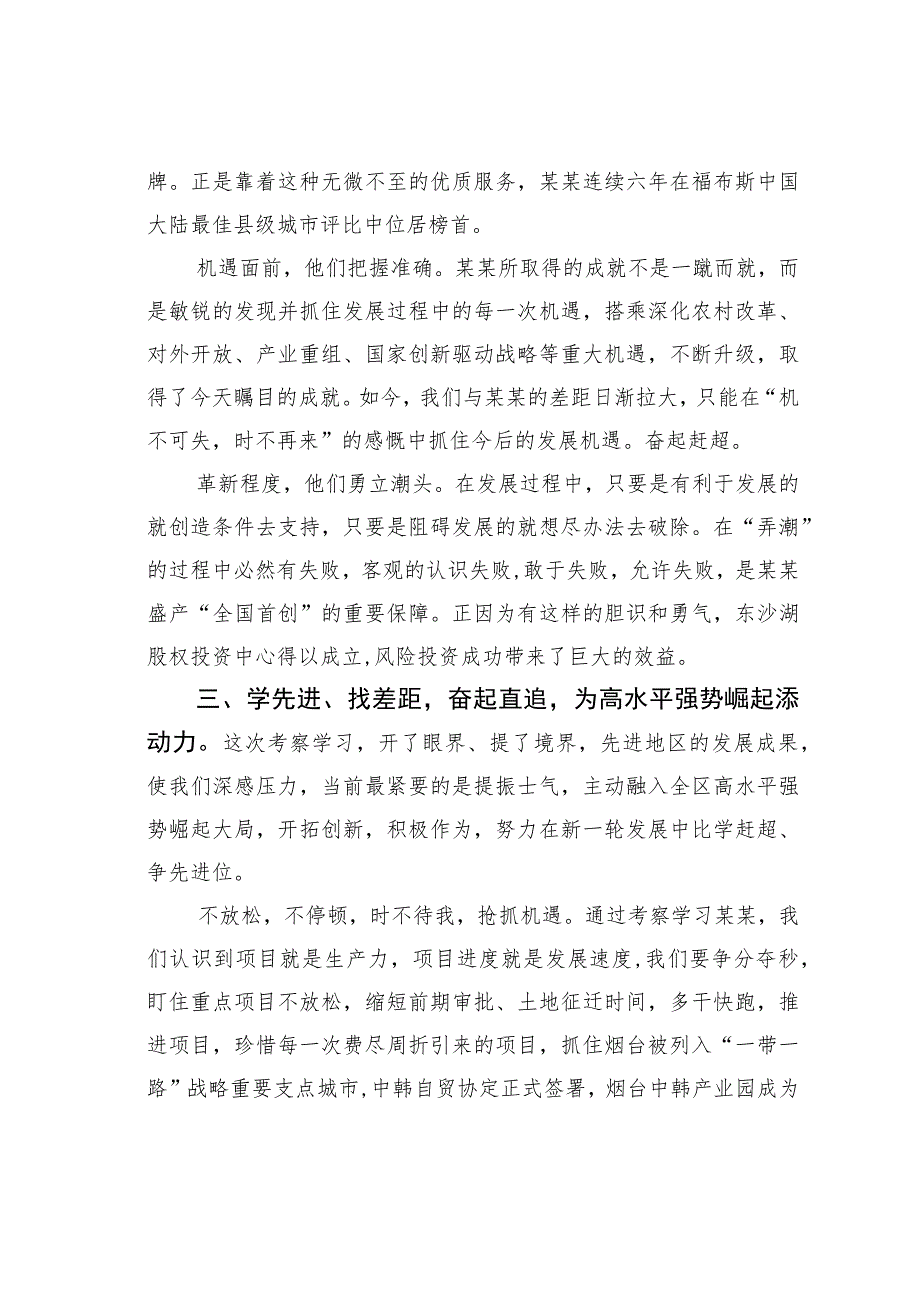 牌。正是靠着这种无微不至的优质服务，某某连续六年在福布斯中国
大陆最佳县级城市评比中位居榜首。
机遇面前，他们把握准确。某某所取得的成就不是一蹴而就，而
是敏锐的发现并抓住发展过程中的每一次机遇，搭乘深化农村改革、
对外开放、产业重组、国家创新驱动战略等重大机遇，不断升级，取
得了今天瞩目的成就。如今，我们与某某的差距日渐拉大，只能在“机
不可失，时不再来”的感慨中抓住今后的发展机遇。奋起赶超。
革新程度，他们勇立潮头。在发展过程中，只要是有利于发展的
就创造条件去支持，只要是阻碍发展的就想尽办法去破除。在“弄潮”
的过程中必然有失败，客观的认识失败,敢于失败，允许失败，是某某
盛产“全国首创”的重要保障。正因为有这样的胆识和勇气，东沙湖
股权投资中心得以成立,风险投资成功带来了巨大的效益。
三、学先进、找差距，奋起直追，为高水平强势崛起添
动力。这次考察学习，开了眼界、提了境界，先进地区的发展成果，
使我们深感压力，当前最紧要的是提振士气，主动融入全区高水平强
势崛起大局，开拓创新，积极作为，努力在新一轮发展中比学赶超、
争先进位。
不放松，不停顿，时不待我，抢抓机遇。通过考察学习某某，我
们认识到项目就是生产力，项目进度就是发展速度,我们要争分夺秒，
盯住重点项目不放松，缩短前期审批、土地征迁时间，多干快跑，推
进项目，珍惜每一次费尽周折引来的项目，抓住烟台被列入“一带一
路”战略重要支点城市,中韩自贸协定正式签署，烟台中韩产业园成为